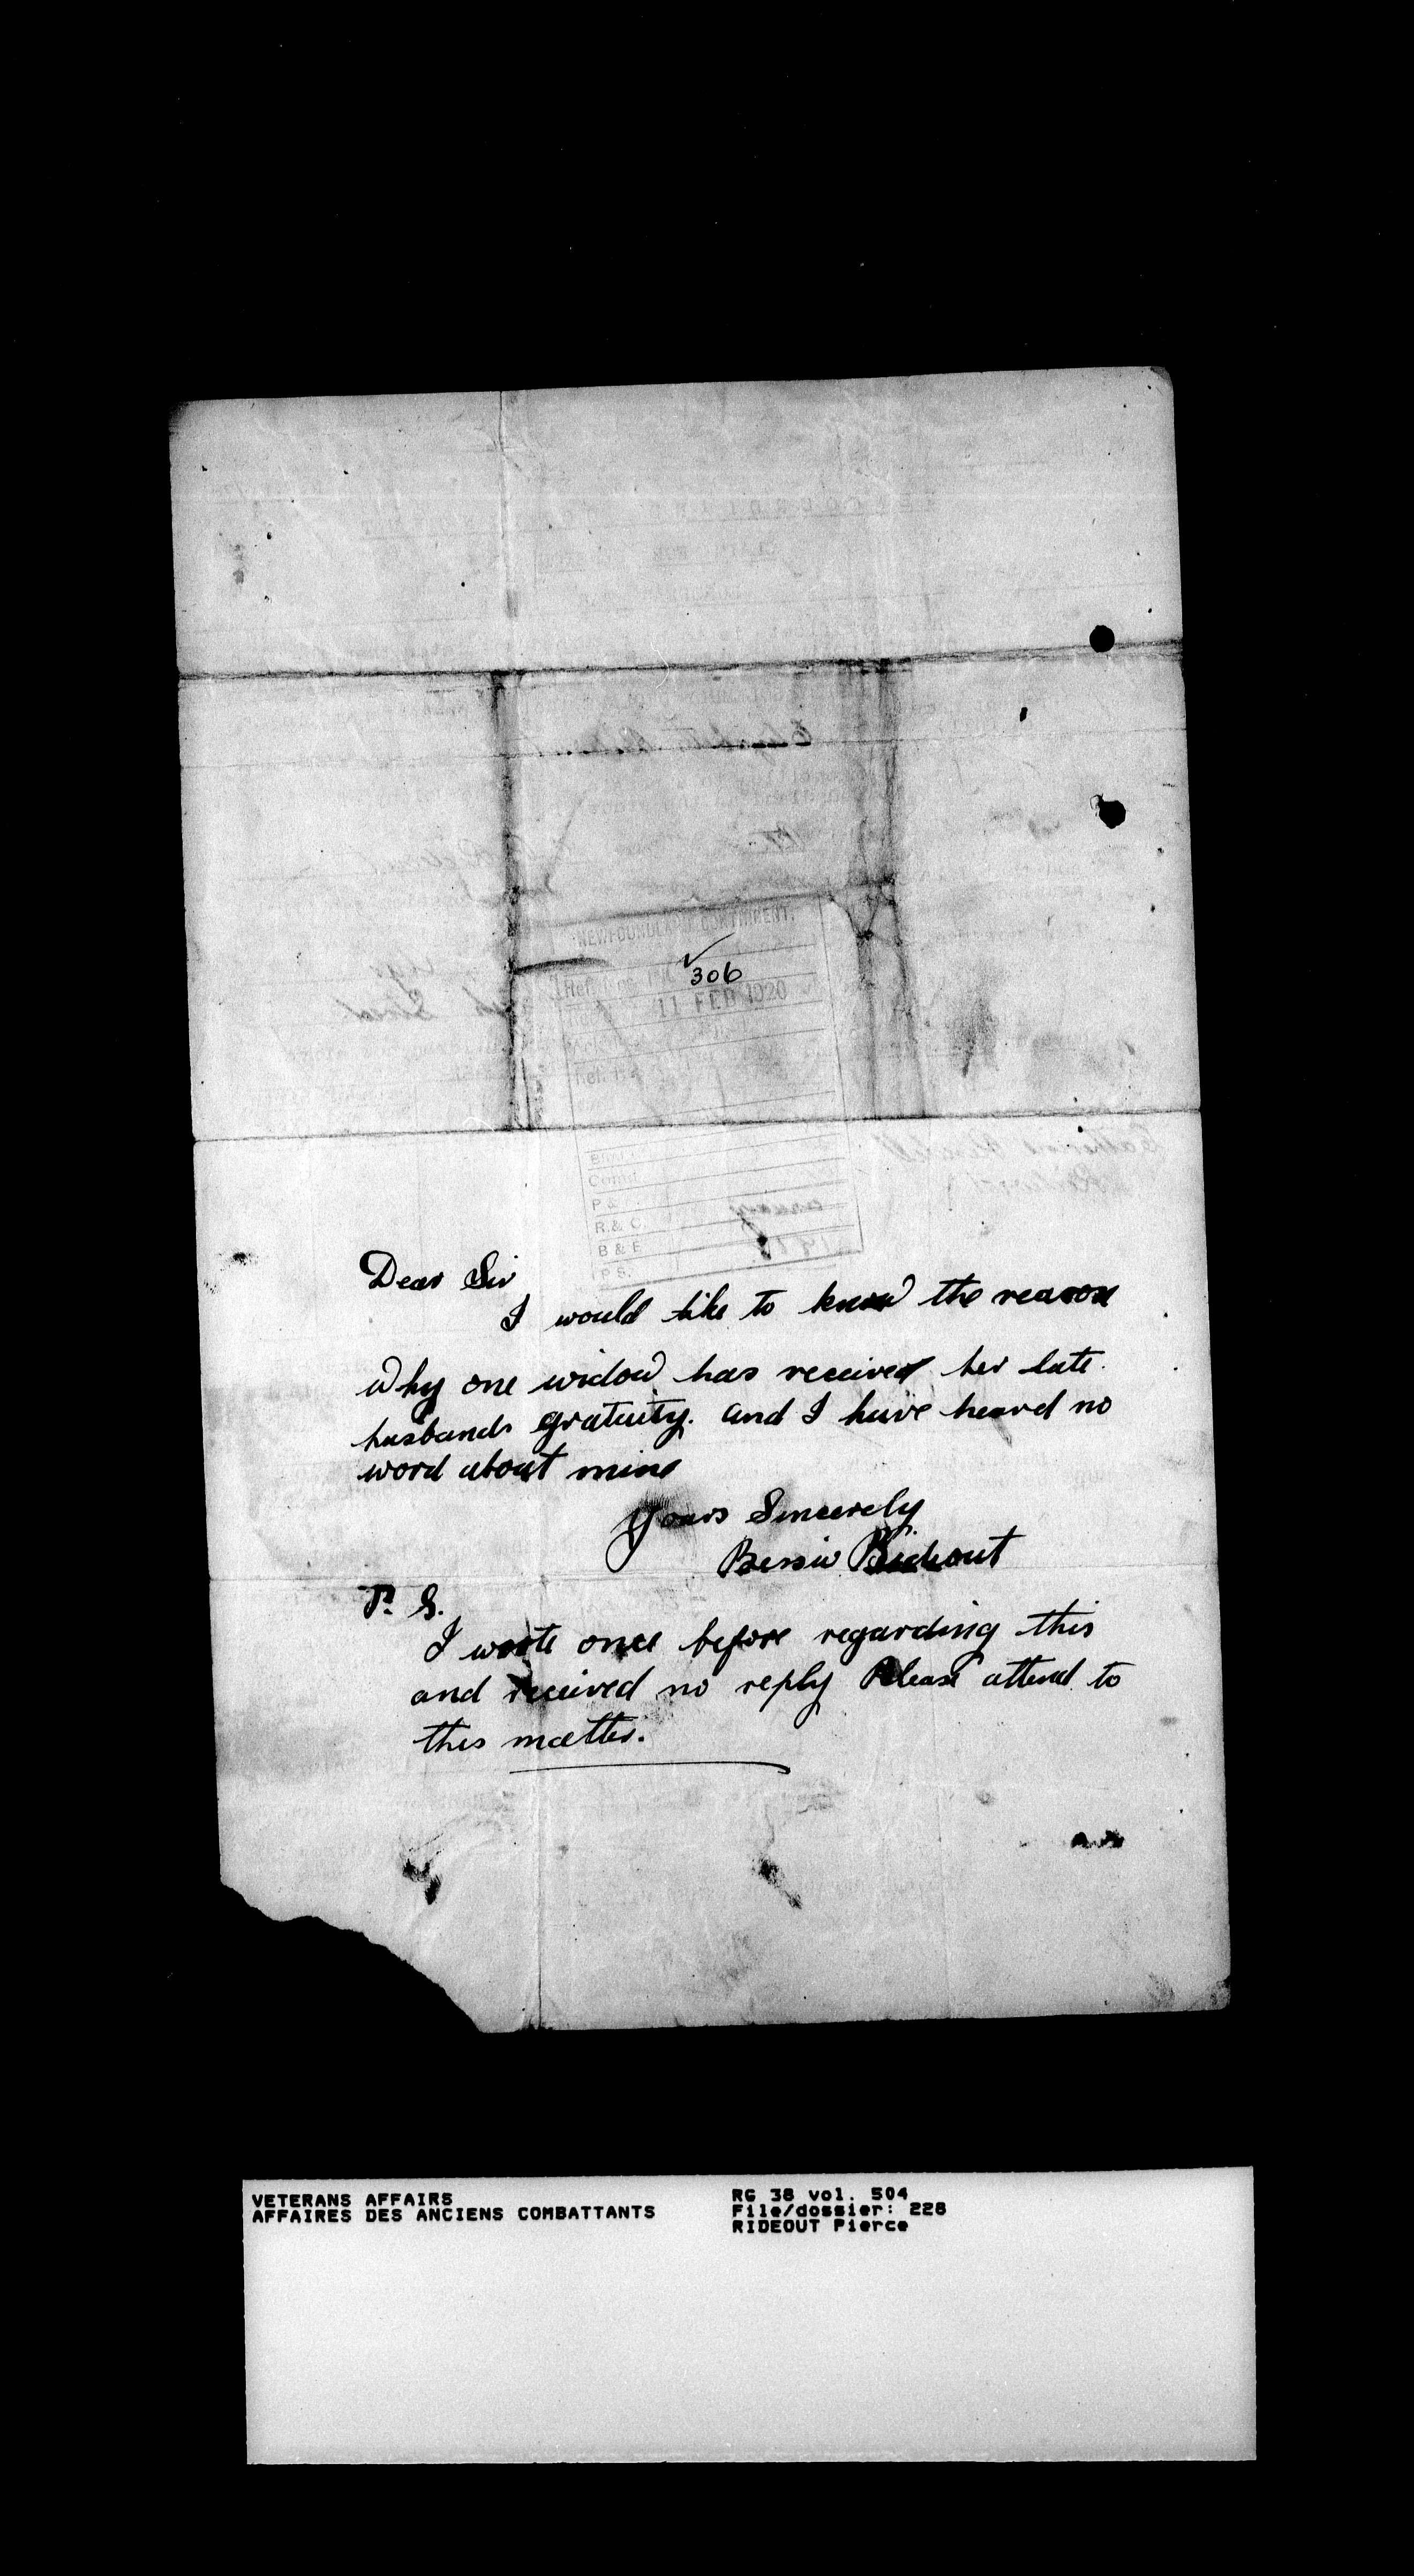 NEWFOUNDLAND CONTINGENT.
306
11 FEB 1920
P &
R. & C.
B & E
P S.
Dear Sir
I would like to know the reason
Why one widow has received her late
husbands gratuity. and I have heard no
word about mine
Yours Sincerely
Bessie Rideout
P. S.
I wrote once before regarding this
and received no reply Please attend to
this matter.
VETERANS AFFAIRS
AFFAIRES DES ANCIENS COMBATTANTS
RG 38 vol. 504
File/dossier: 228
RIDEOUT Pierce